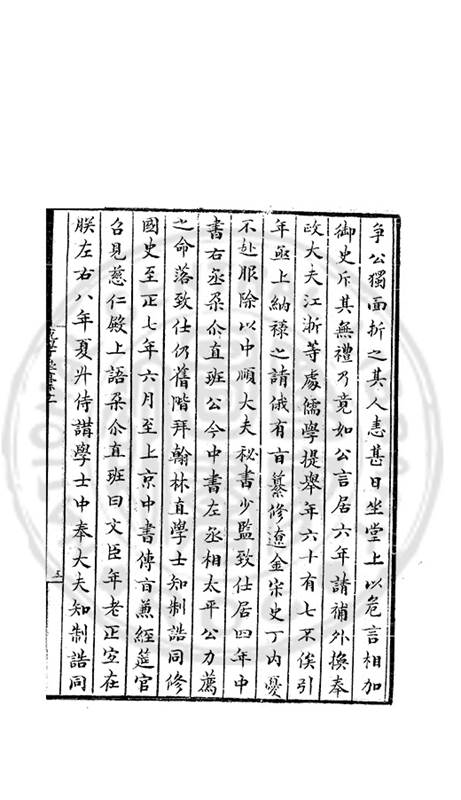 争公獨面折之其人恚甚日坐堂上以危言相加
御史斥其無禮乃竟如公言居六年請補外換奉
政大夫江浙等處儒學提舉年六十有七不俟引
年亟上納祿之請俄有旨纂修遼金宋史丁内憂
不赴服除以中順大夫秘書少監致仕居四年中
書右丞朶尒直班公今中書左丞相太平公力薦
之命落致仕仍舊階拜翰林直學士知制誥同修
國史至正七年六月至上京中書傳旨兼經筵官
召見慈仁殿上語朶尒直班曰文臣年老正宜在
朕左右八年夏升侍講學士中奉大夫知制誥同